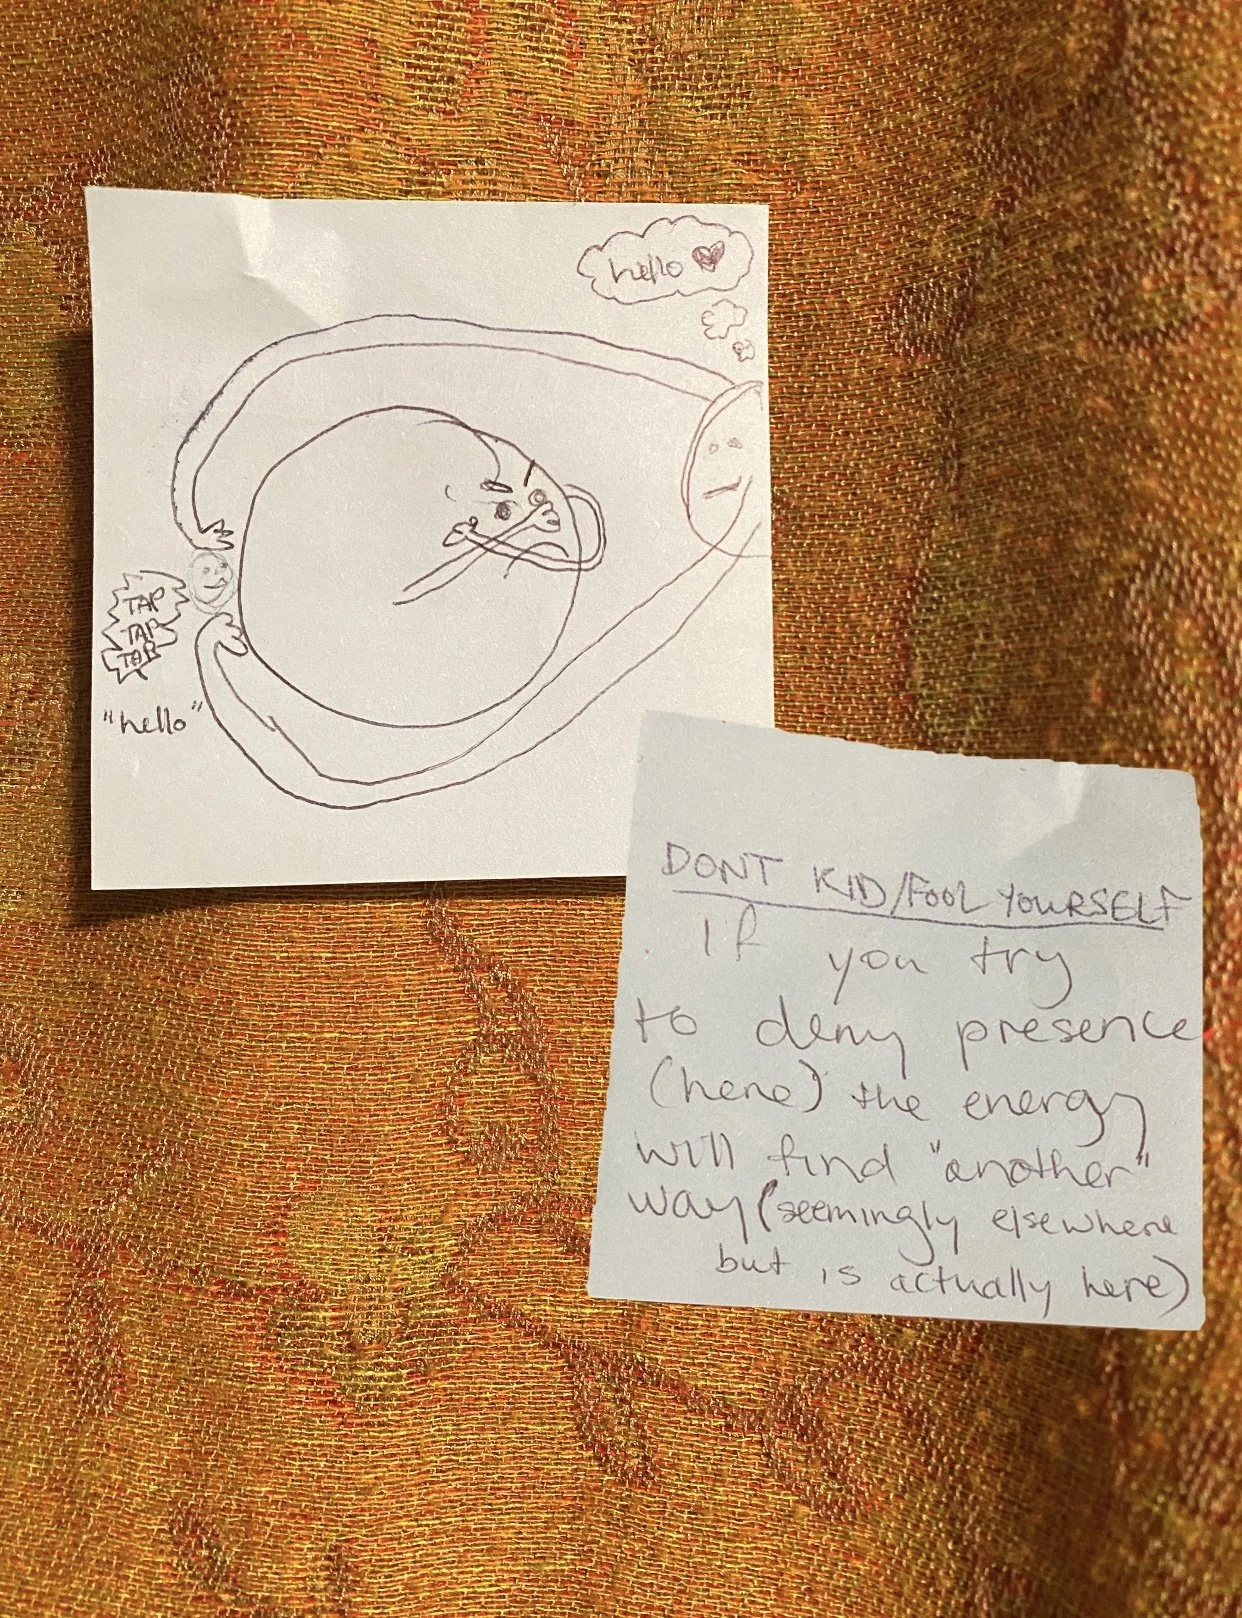 hello
TAP
TAP
TAP
"hello"
DONT KID/FOOL YOURSELF
If you try
to deny presence
(here) the energy
will find "another"
way (seemingly elsewhere
but is actually here)